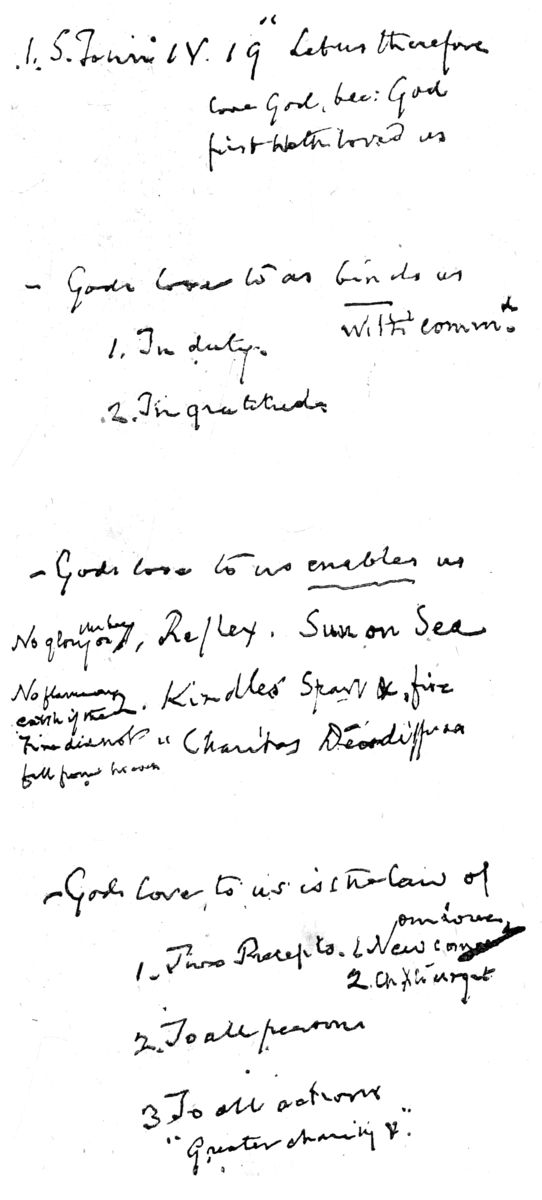 .1. S. John IV. 19 "Let us therefore
love God, bec: God
first hath loved us
- Gods love to us binds us
1. In duty. with comm.d
2. In gratitude
- Gods love to us enables us
No glory on, Reflex. Sun on Sea
No flame on
earth if the. Kindles Spark &, fire
Fire did not " Charitas Dei diffusa
fall from heaven
- Gods love to us is the law of our love,
1. Two Precepts. 1. New comm
2. Chti urget
2. To all persons
3 To all actions
"Greater charity &."